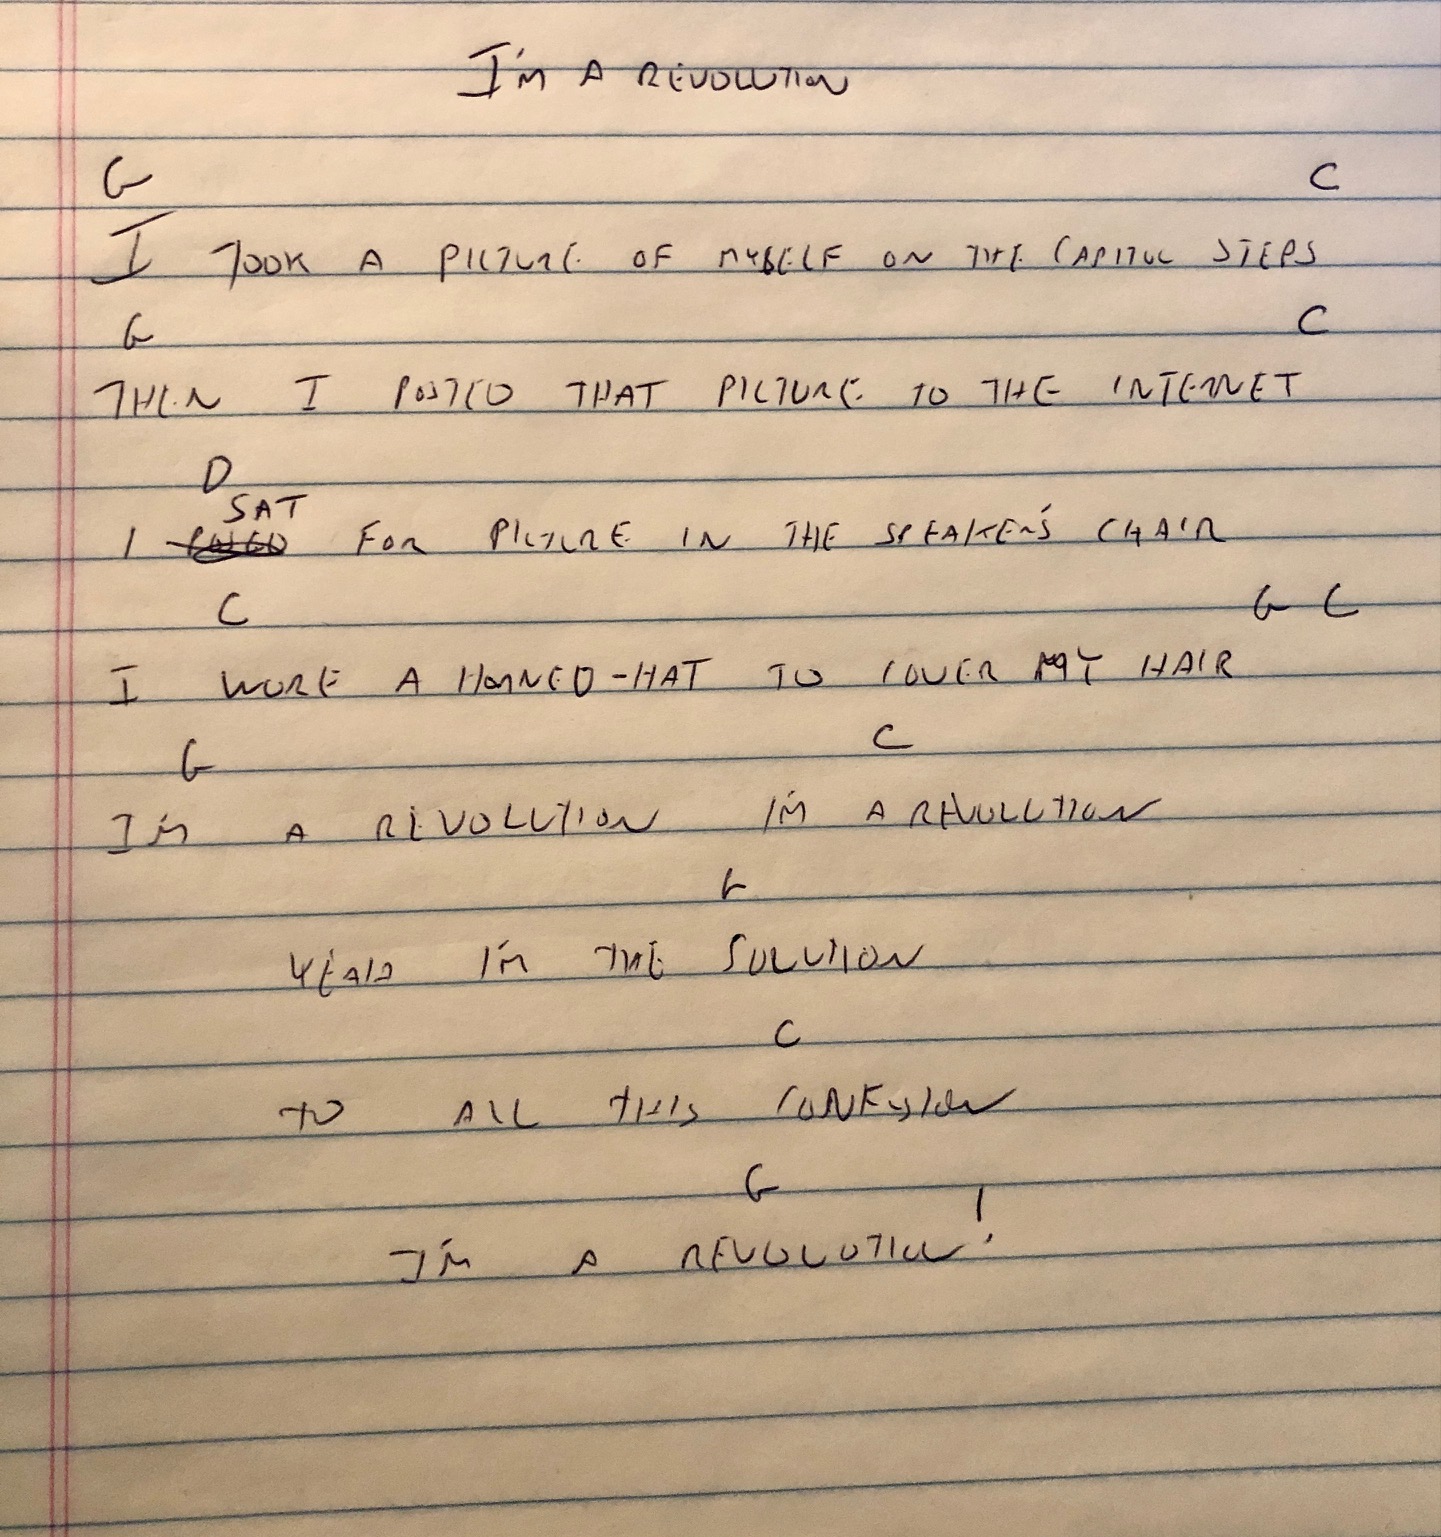 I'M A REVOLUTION
G C
I TOOK A PICTURE OF MYSELF ON THE CAPITOL STEPS
G C
THEN I POSTED THAT PICTURE TO THE INTERNET
D
SAT
I FOR PICTURE IN THE SPEAKER'S CHAIR
C G C
I WORE A HORNED-HAT TO COVER MY HAIR
G C
I'M A REVOLUTION I'M A REVOLUTION
G
YEAH I'M THE SOLUTION
C
TO ALL THIS CONFUSION
G
I'M A REVOLUTION!